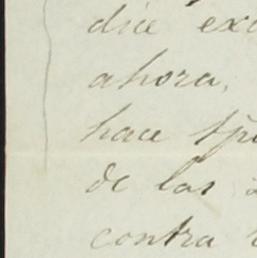 dice
ahora,
hace
de las
contra